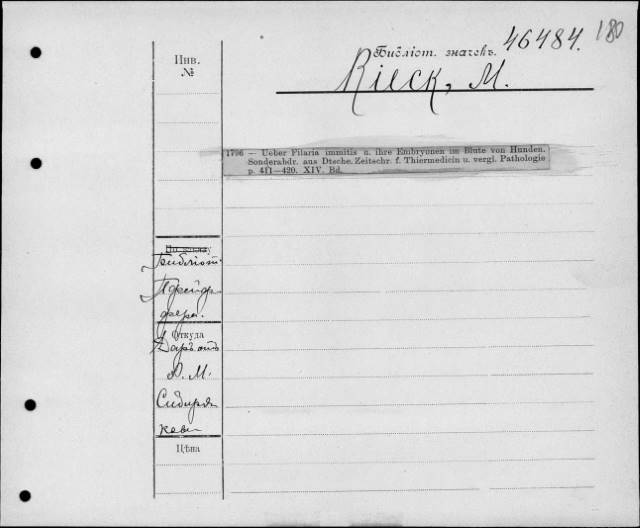 180
Библіот. значекъ. 46484.
Rieck, M.
Инв.
№
1796 — Ueber Filaria immitis u. ihre Embryonen im Blute von Hunden.
Sonderabdr. aus Dtsche. Zeitschr. f. Thiermedicin u. vergl. Pathologie
p. 411—420. XIV. Bd.
Библіот.
Пфейф-
фера.
Откуда
Даръ отъ
А. М.
Сибиря-
кова
Цѣна